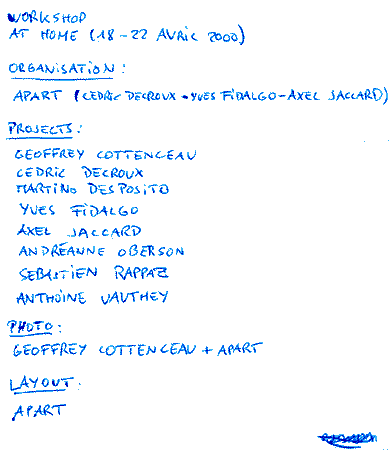 WORKSHOP
AT HOME (18-22 AVRIL 2000)
ORGANISATION:
APART (CÉDRIC DECROUX - YVES FIDALGO - AXEL JACCARD)
PROJECTS:
GEOFFREY COTTENCEAU
CÉDRIC DECROUX
MARTINO DESPOSITO
YVES FIDALGO
AXEL JACCARD
ANDRÉANNE OBERSON
SÉBASTIEN RAPPAZ
ANTHOINE VAUTHEY
PHOTO:
GEOFFREY COTTENCEAU + APART
LAYOUT:
APART